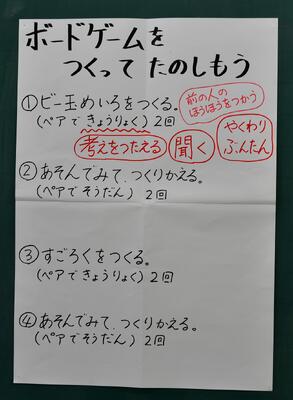 ボードゲームを
つくって たのしもう
①ビー玉めいろをつくる。
(ペアできょうりょく)2回
前の人の
ほうほうをつかう
考えをつたえる
聞く
やくわり
ぶんたん
②あそんでみて、つくりかえる。
(ペアでそうだん) 2回
③すごろくをつくる。
(ペアできょうりょく)2回
④あそんでみて、つくりかえる。
(ペアでそうだん)2回